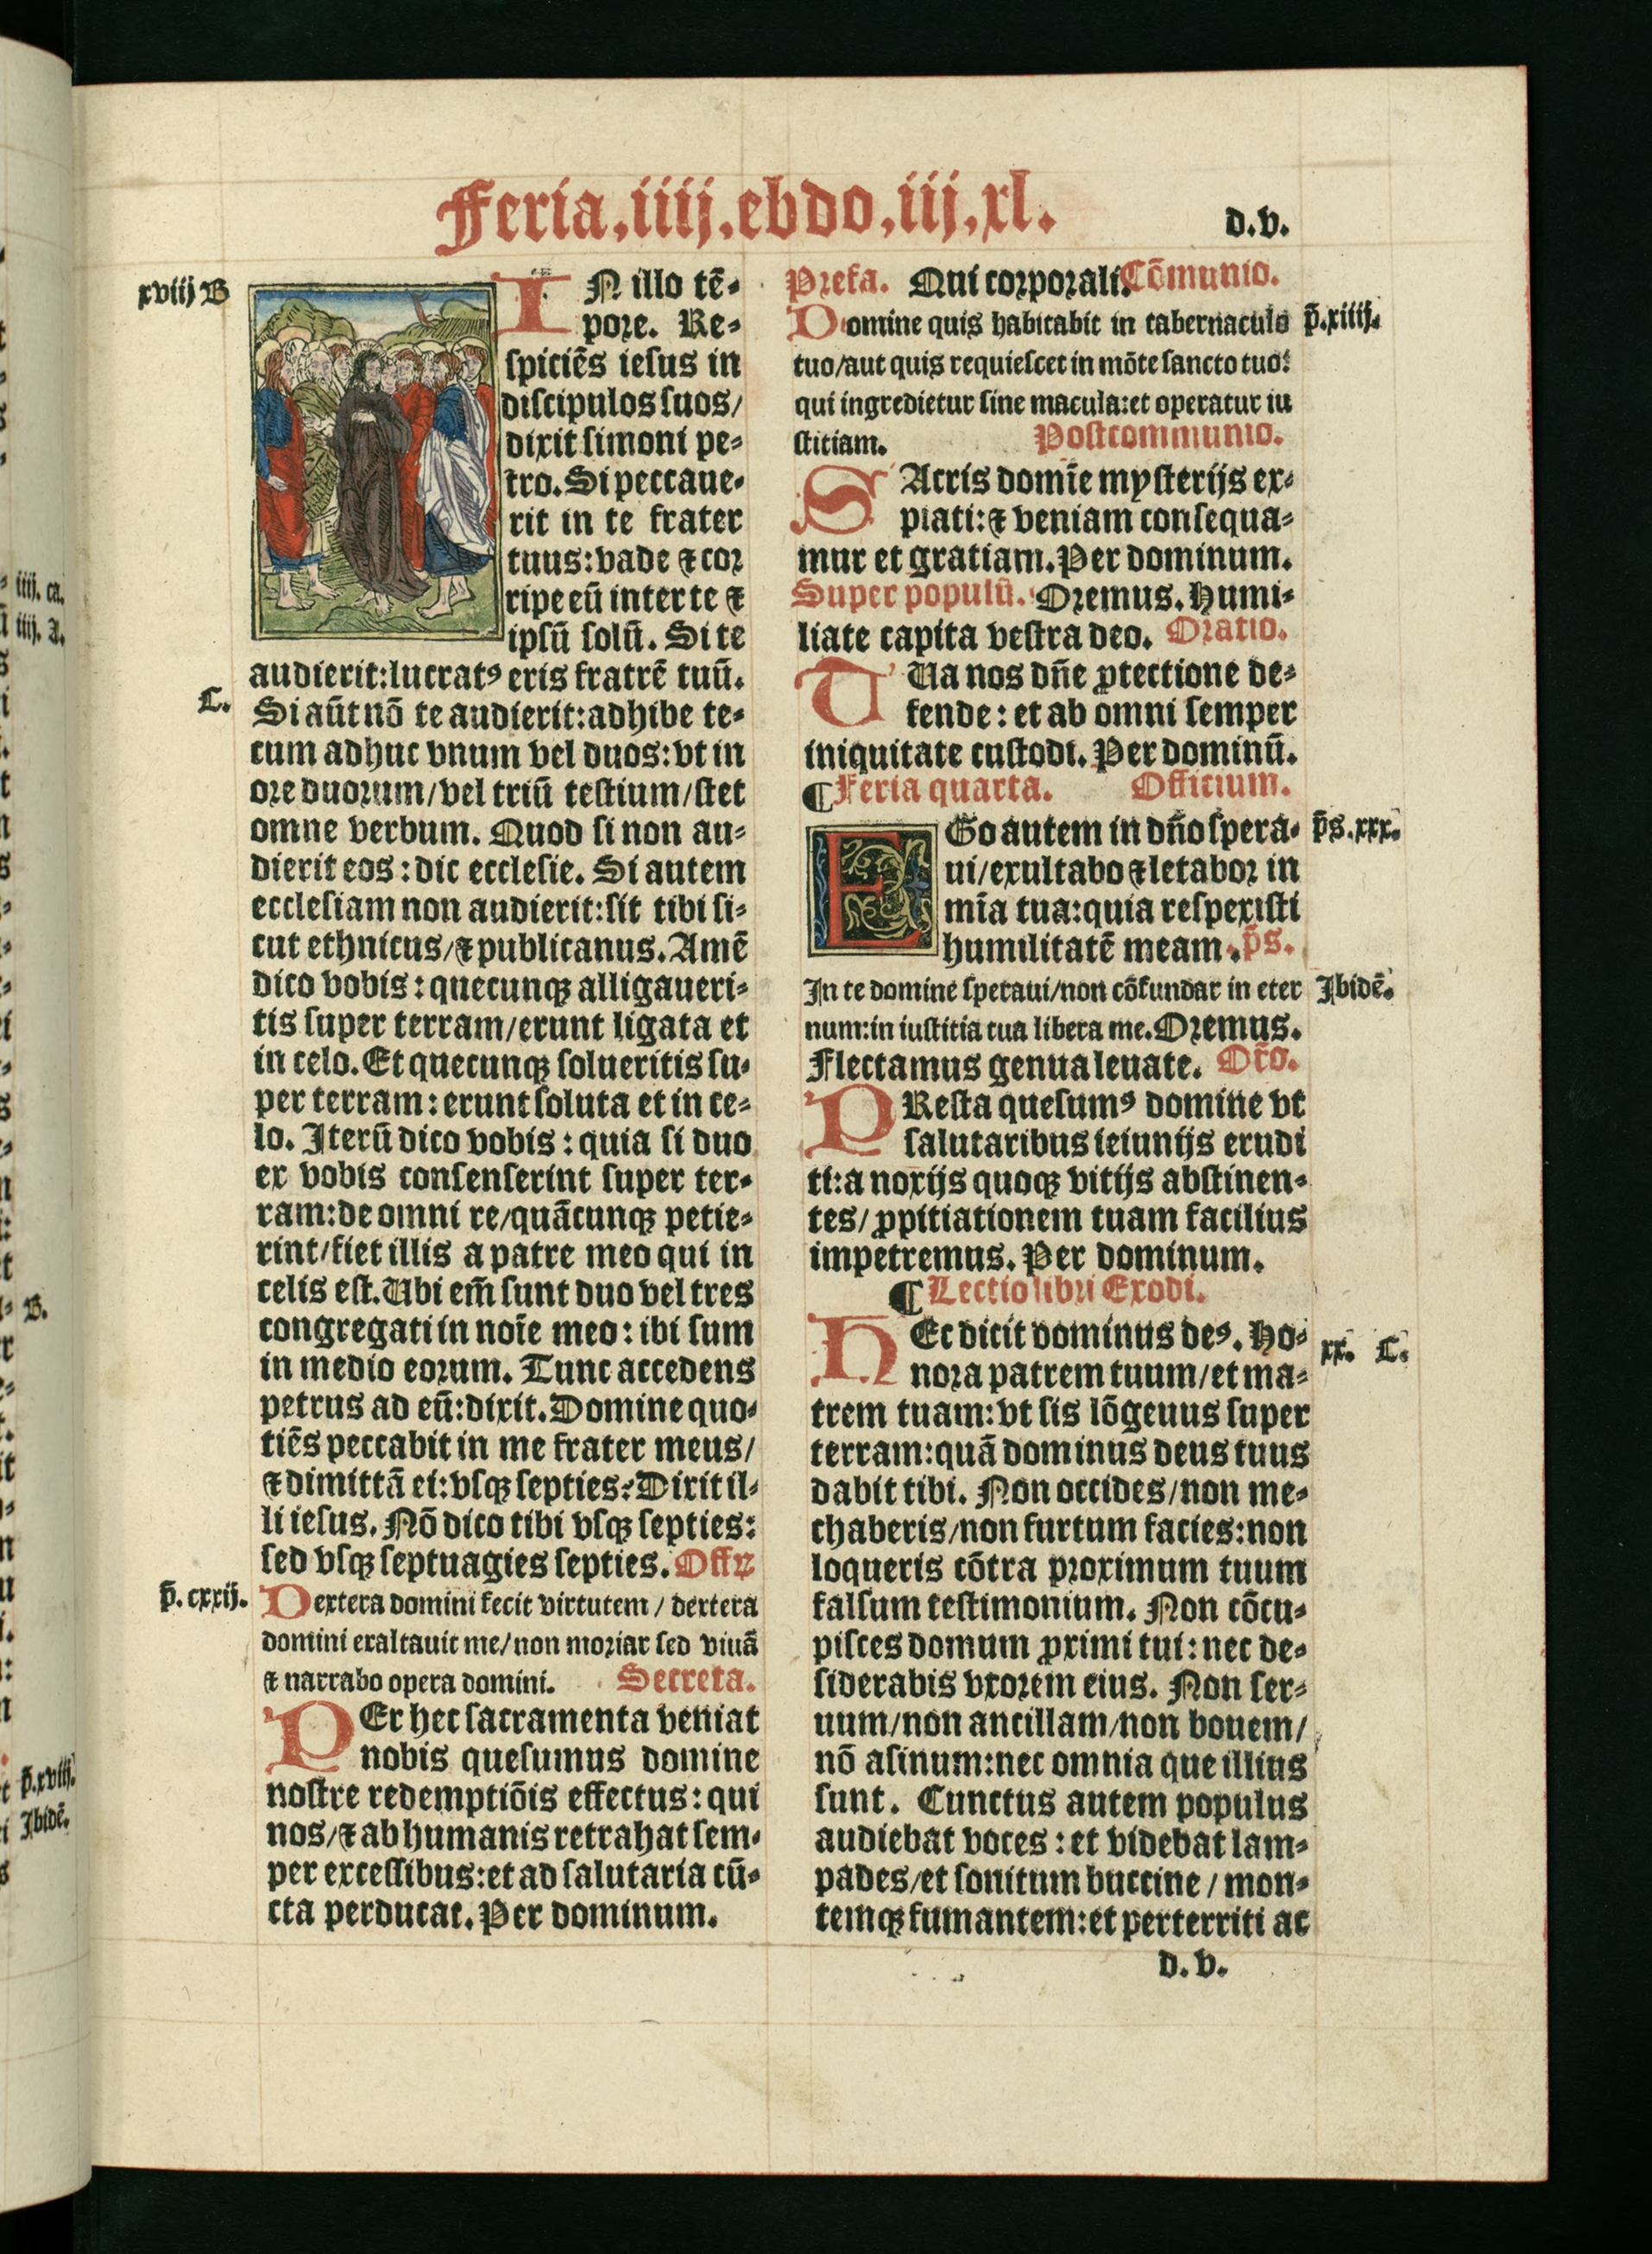 Feria.iiij.ebdo.iij.xl.
d.v.
xviij B
IN illo tē-
pore. Re-
spiciēs iesus in
discipulos suos/
dixit simoni pe-
tro. Si peccaue-
rit in te frater
tuus: vade ⁊ cor
ripe eū inter te ⁊
ipsū solū. Si te
audierit: lucratꝰ eris fratrē tuū.
C.
Si aūt nō te audierit: adhibe te-
cum adhuc vnum vel duos: vt in
ore duorum/vel triū testium/stet
omne verbum. Quod si non au-
dierit eos: dic ecclesie. Si autem
ecclesiam non audierit: sit tibi si-
cut ethnicus/⁊ publicanus. Amē
dico vobis: quecunqꝫ alligaueri-
tis super terram/erunt ligata et
in celo. Et quecunqꝫ solueritis su-
per terram: erunt soluta et in ce-
lo. Iterū dico vobis: quia si duo
ex vobis consenserint super ter-
ram: de omni re/quācunqꝫ petie-
rint/fiet illis a patre meo qui in
celis est. Ubi em̄ sunt duo vel tres
congregati in noīe meo: ibi sum
in medio eorum. Tunc accedens
petrus ad eū: dixit. Domine quo-
tiēs peccabit in me frater meus/
⁊ dimittā ei: vsqꝫ septies? Dixit il-
li iesus. Nō dico tibi vsqꝫ septies:
sed vsqꝫ septuagies septies. Offꝝ
p̄. cxxij.
Dextera domini fecit virtutem / dextera
domini exaltauit me/non moriar sed viuā
⁊ narrabo opera domini. Secreta.
PEr hec sacramenta veniat
nobis quesumus domine
nostre redemptiōis effectus: qui
nos/⁊ ab humanis retrahat sem-
per excessibus: et ad salutaria cū-
cta perducat. Per dominum.
Prefa. Qui corporali. Cōmunio.
Domine quis habitabit in tabernaculo
p̄.xiiij.
tuo/aut quis requiescet in mōte sancto tuo?
qui ingredietur sine macula: et operatur iu
stitiam. Postcommunio.
SAcris domīe mysterijs ex-
piati: ⁊ veniam consequa-
mur et gratiam. Per dominum.
Super populū. Oremus. Humi-
liate capita vestra deo. Oratio.
TUa nos dn̄e ꝓtectione de-
fende: et ab omni semper
iniquitate custodi. Per dominū.
¶ Feria quarta. Officium.
EGo autem in dn̄o spera-
p̄s.xxx.
ui/exultabo ⁊ letabor in
mīa tua: quia respexisti
humilitatē meam. p̄s.
In te domine speraui/non cōfundar in eter
Ibidē.
num: in iustitia tua libera me. Oremus.
Flectamus genua leuate. Or̄o.
PResta quesumꝰ domine vt
salutaribus ieiunijs erudi
ti: a noxijs quoqꝫ vitijs abstinen-
tes/ ꝓpitiationem tuam facilius
impetremus. Per dominum.
¶ Lectio libri Exodi.
HEc dicit dominus deꝰ. Ho-
xx. C.
nora patrem tuum/et ma-
trem tuam: vt sis lōgeuus super
terram: quā dominus deus tuus
dabit tibi. Non occides/non me-
chaberis/non furtum facies: non
loqueris cōtra proximum tuum
falsum testimonium. Non cōcu-
pisces domum ꝓximi tui: nec de-
siderabis vxorem eius. Non ser-
uum/non ancillam/non bouem/
nō asinum: nec omnia que illius
sunt. Cunctus autem populus
audiebat voces: et videbat lam-
pades/et sonitum buccine / mon-
temqꝫ fumantem: et perterriti ac
d.v.
iiij. ca.
iiij. A.
B.
p̄.xviij.
Ibidē.